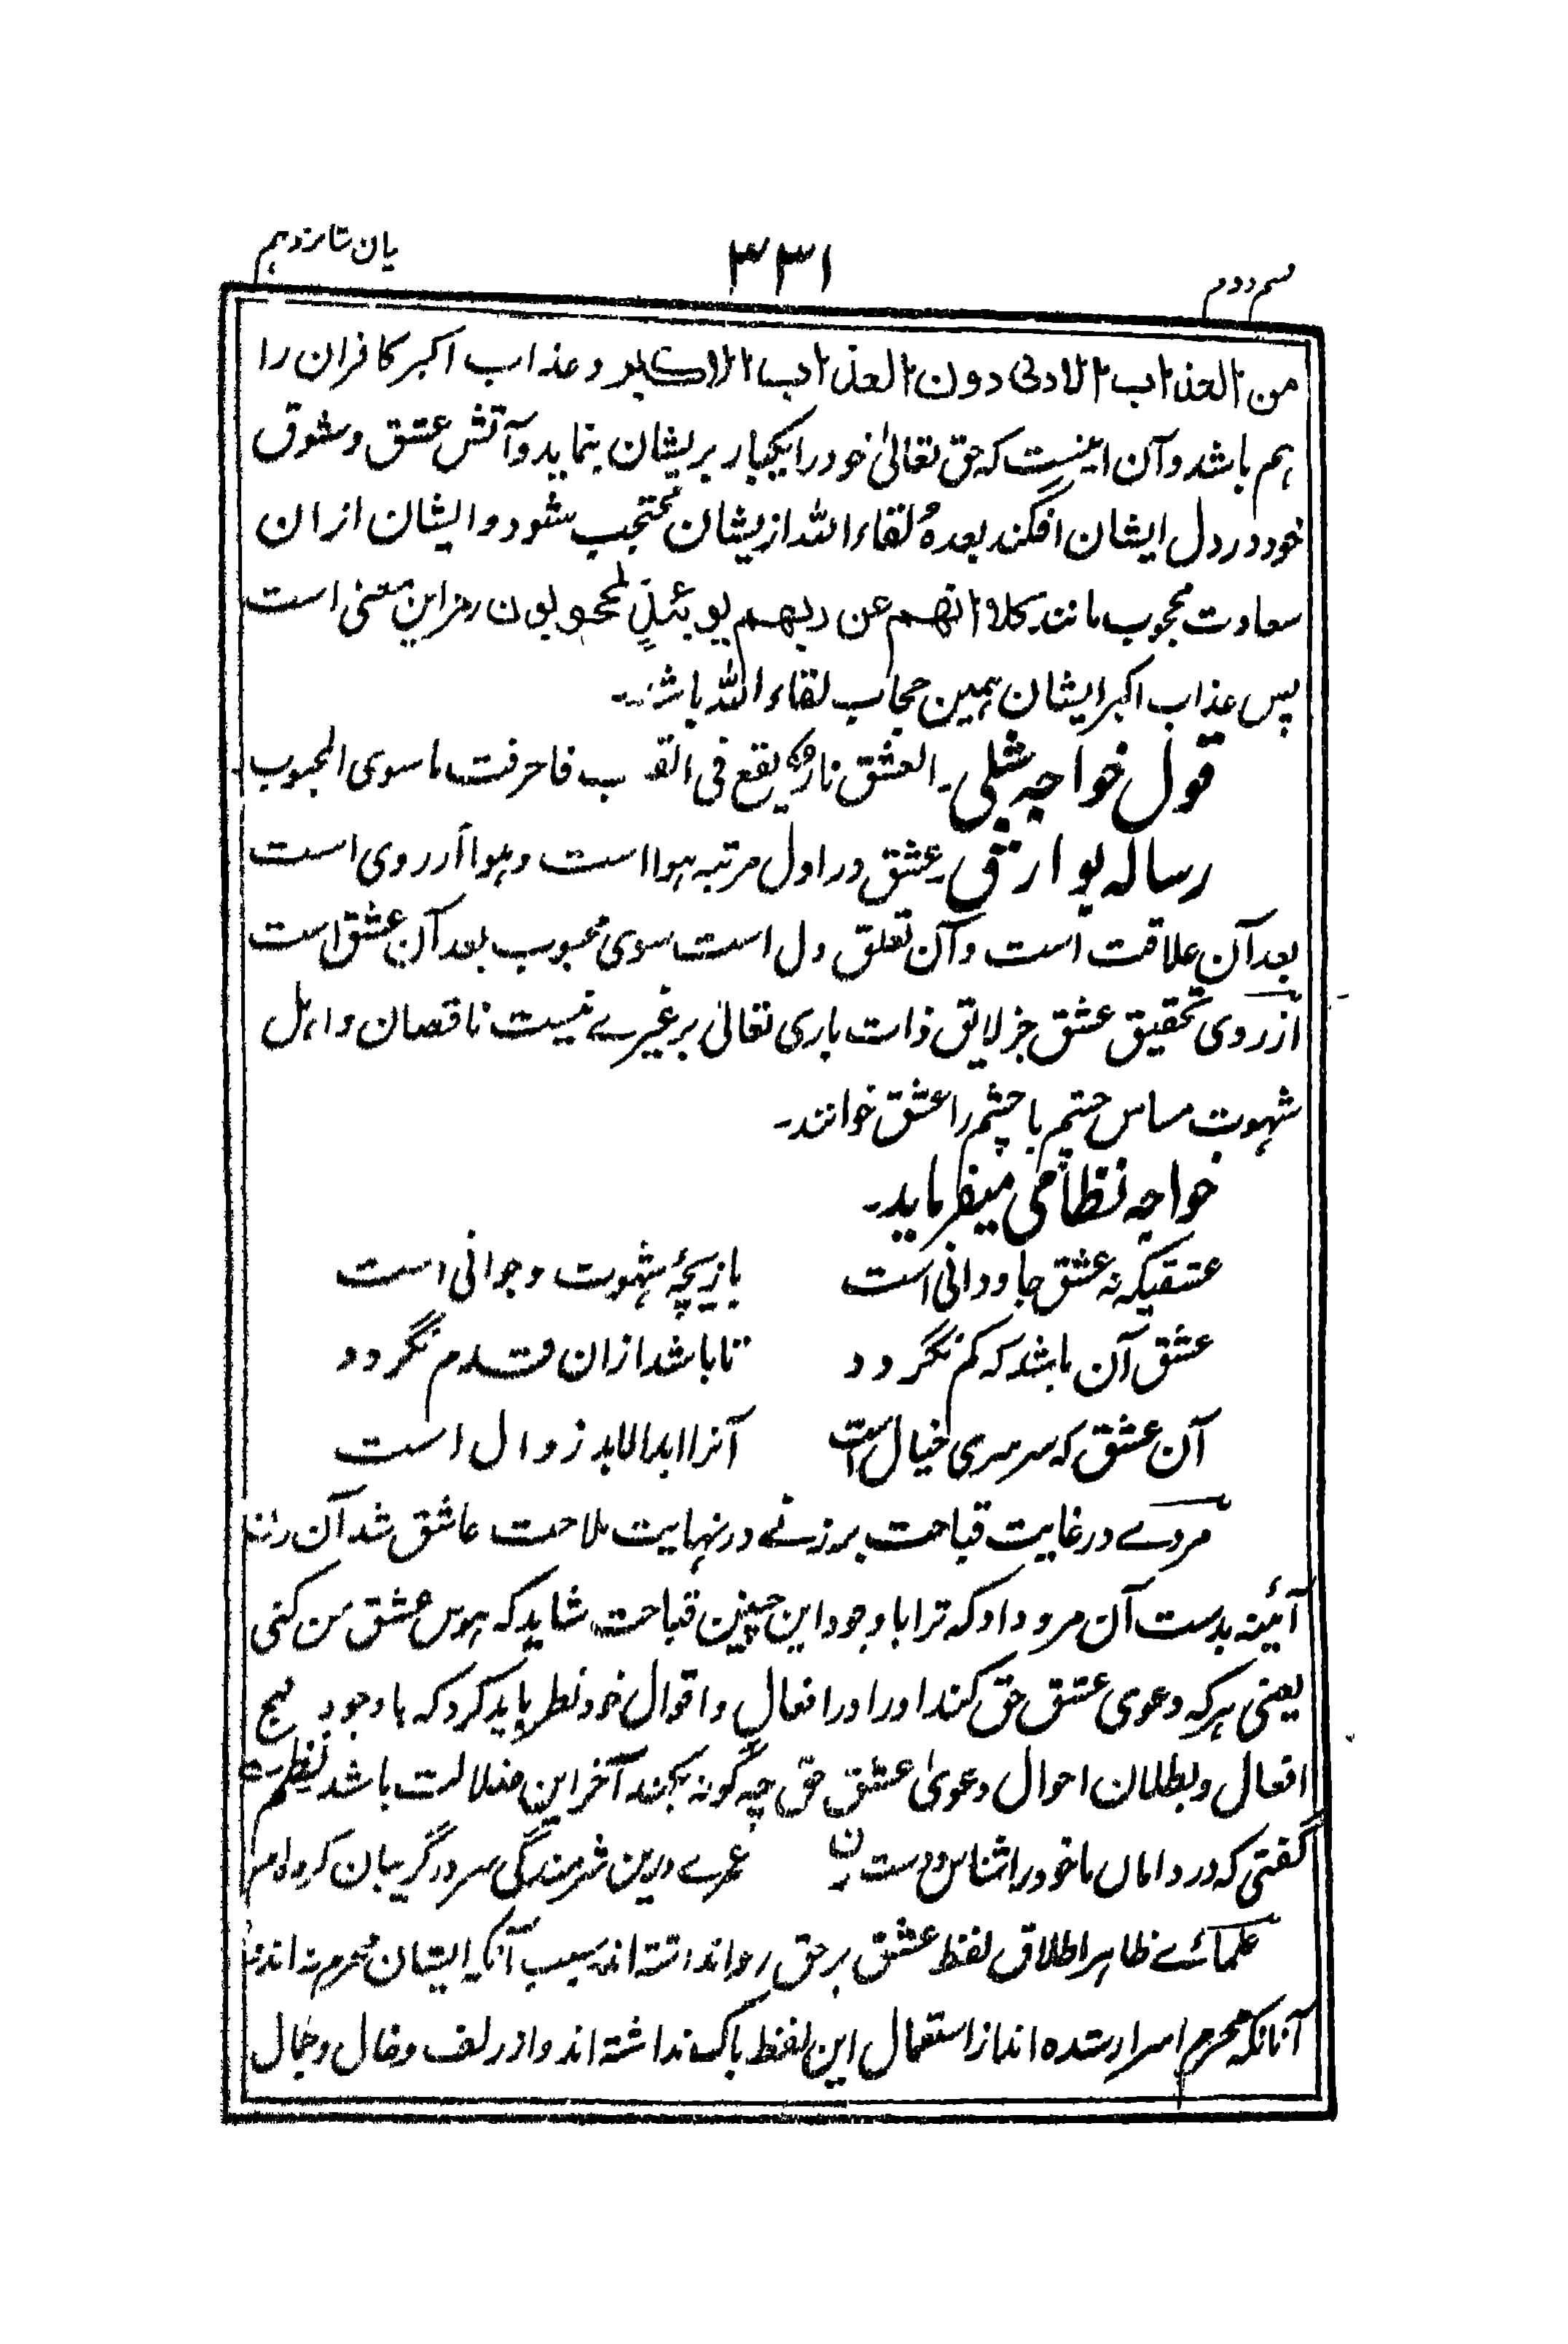 قسم دوم ۳۳۱ بیان شانزدهم
من العذاب الادنى دون العذاب الاكبر و عذاب اکبر کافران را
ہم باشد و آن اینست کہ حق تعالیٰ خود را یکبار بریشان بنماید و آتش عشق و شوق
خود در دل ایشان افگند بعدہٗ لقاء اللہ ازیشان محتجب شود و ایشان از ان
سعادت محجوب مانند کلا انهم عن ربهم يومئذٍ لمحجوبون رمز این معنی است
پس عذاب اکبر ایشان ہمین حجاب لقاء اللہ باشد۔
قول خواجہ شبلی۔ العشق نارٌ یقع فی القلب فاحرقت ماسوی المحبوب
رسالہ بوارق۔ عشق در اول مرتبہ ہوا است و ہوا آرزوی است
بعد آن علاقت است و آن تعلق دل است سوی محبوب بعد آن عشق است
از روی تحقیق عشق جز لایق ذات باری تعالیٰ بر غیرے نیست ناقصان و اہل
شہوت مساس جسم با جسم را عشق خوانند۔
خواجہ نظامی میفرماید۔
عشقیکہ نہ عشق جاودانی است بازیچۂ شہوت و جوانی است
عشق آن باشد کہ کم نگردد تا باشد ازان قدم نگردد
آن عشق کہ سرسری خیال است آنرا ابدالابد زوال است
مردے در غایت قباحت بر زنے در نہایت ملاحت عاشق شد آن زن
آئینہ بدست آن مرد داد کہ ترا با وجود این چنین قباحت شاید کہ ہوس عشق من کنی
یعنی ہر کہ دعوی عشق حق کند اورا در افعال و اقوال خود نظر باید کرد کہ با وجود قبح
افعال و بطلان احوال دعویٰ عشق حق چہ گونہ بکند آخر این ضلالت باشد نظم
گفتی کہ در داماں ما خود را شناس و دست زن عمرے درین شرمندگی سر در گریبان کردہ ام
علمائے ظاہر اطلاق لفظ عشق بر حق روا نداشتہ اند بسبب آنکہ ایشان محرم نہ اند
آنانکہ محرم اسرار شدہ اند از استعمال این لفظ باک نداشتہ اند و از زلف و خال و جمال